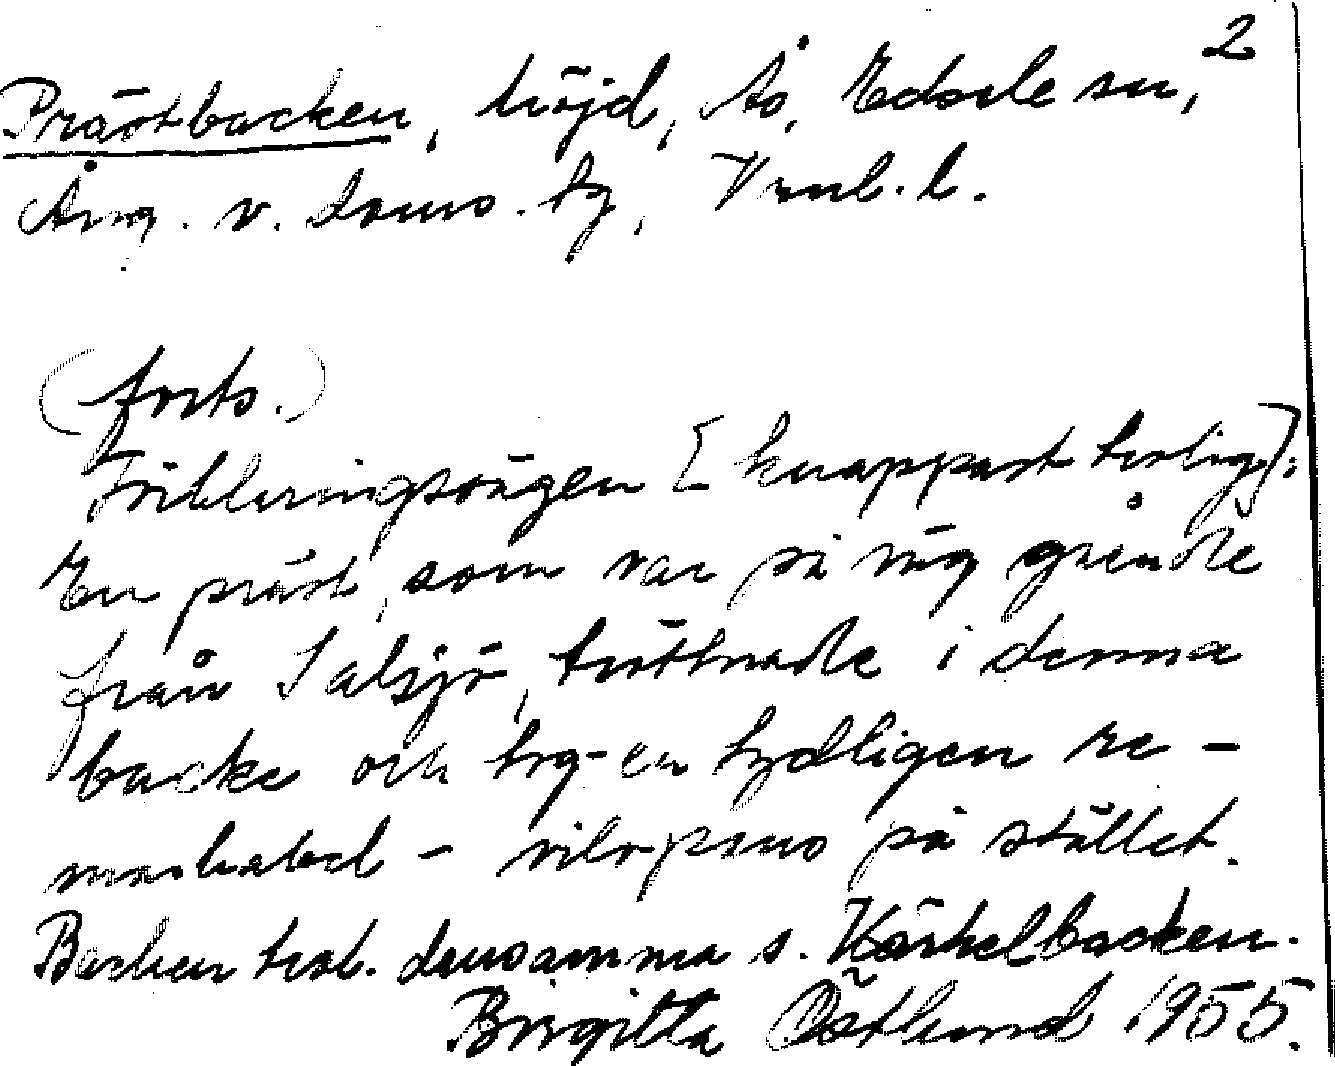 2
Prästbacken, höjd, Ås, Edsele sn,
Ång. v. doms. tg, Vrnl. l.
(forts.)
Förklaringssägen [knappast trolig]:
En präst, som var på väg gående
från Salsjö, tröttnade i denna
backe och tog - en tydligen re-
markabel - vilopaus på stället.
Backen trol. densamma s. Kärkelbacken.
Birgitta Östlund 1955.